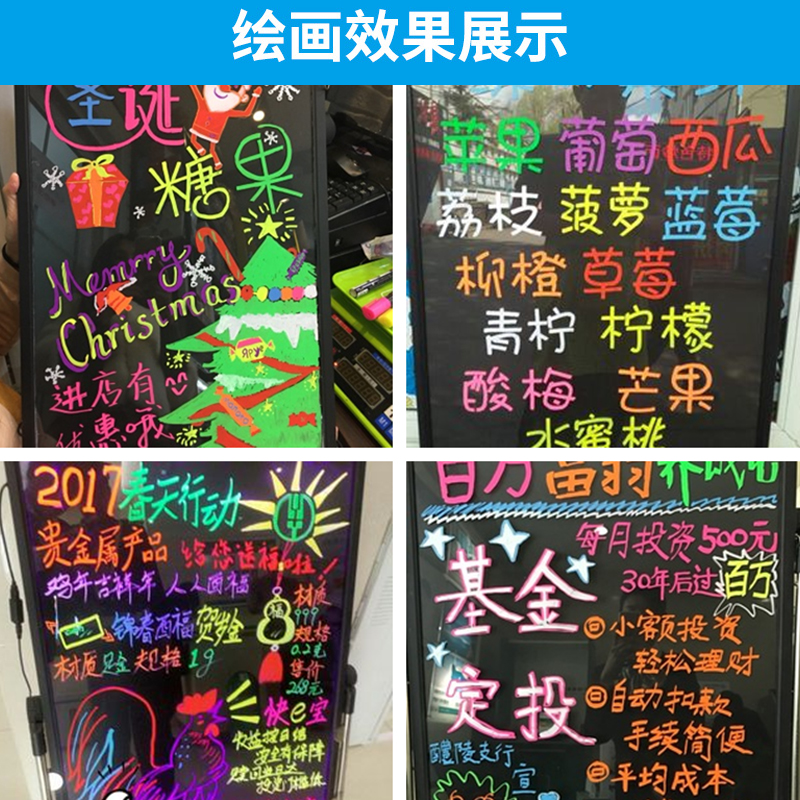 绘画效果展示
圣诞
糖果
Memrry
Christmas
进店有
优惠哦
苹果 葡萄 西瓜
荔枝 菠萝 蓝莓
柳橙 草莓
青柠 柠檬
酸梅 芒果
水蜜桃
2017春天行动
贵金属产品 给您送福啦!
鸡年吉祥年 人人酉福
锦春酉福贺岁金
材质足金 规格 1g
福
材质
999
规格
0.2克
售价
268元
快e宝
收益按日结
安全有保障
每月投资500元
30年后过百万
基金
定投
小额投资
轻松理财
自动扣款
手续简便
平均成本
醴陵支行
宣